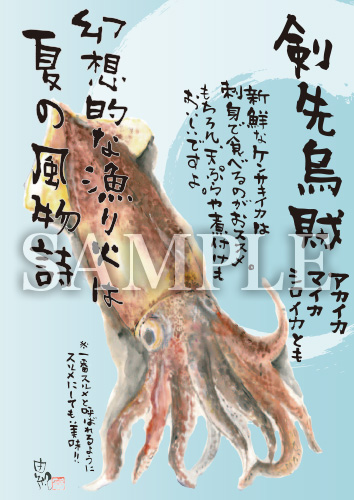 剣先烏賊
アカイカ
マイカ
シロイカとも
新鮮なケンサキイカは
刺身で食べるのがおススメ。
もちろん、天ぷらや煮付けも
おいしいですよ。
幻想的な漁り火は
夏の風物詩
※一番スルメと呼ばれるように
スルメにしても美味!!
SAMPLE